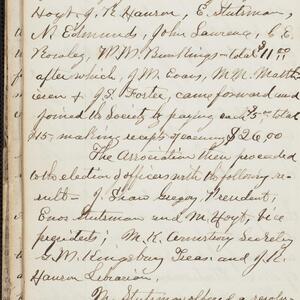 Hoyt, J. R. Hanson, E. Stutsman,
N. Edmunds, John Lawrence, C. E.
Rowley, M. M. Bunkings - total $11.00
after which, J. W. Evans, M. M. Matth
iesen & J. S. Foster, came forward and
joined the Society by paying each $5 - total
$15 - making receipts of evening $26.00
The Association then proceeded
to the election of officers with the following re-
sult - J. Shaw Gregory, President;
Enos Stutsman and M. Hoyt, vice
presidents; M. K. Armstrong Secretary
G. W. Kingsbury Treas. and J. R.
Hanson Librarian.
Mr. Stutsman offered a resolu